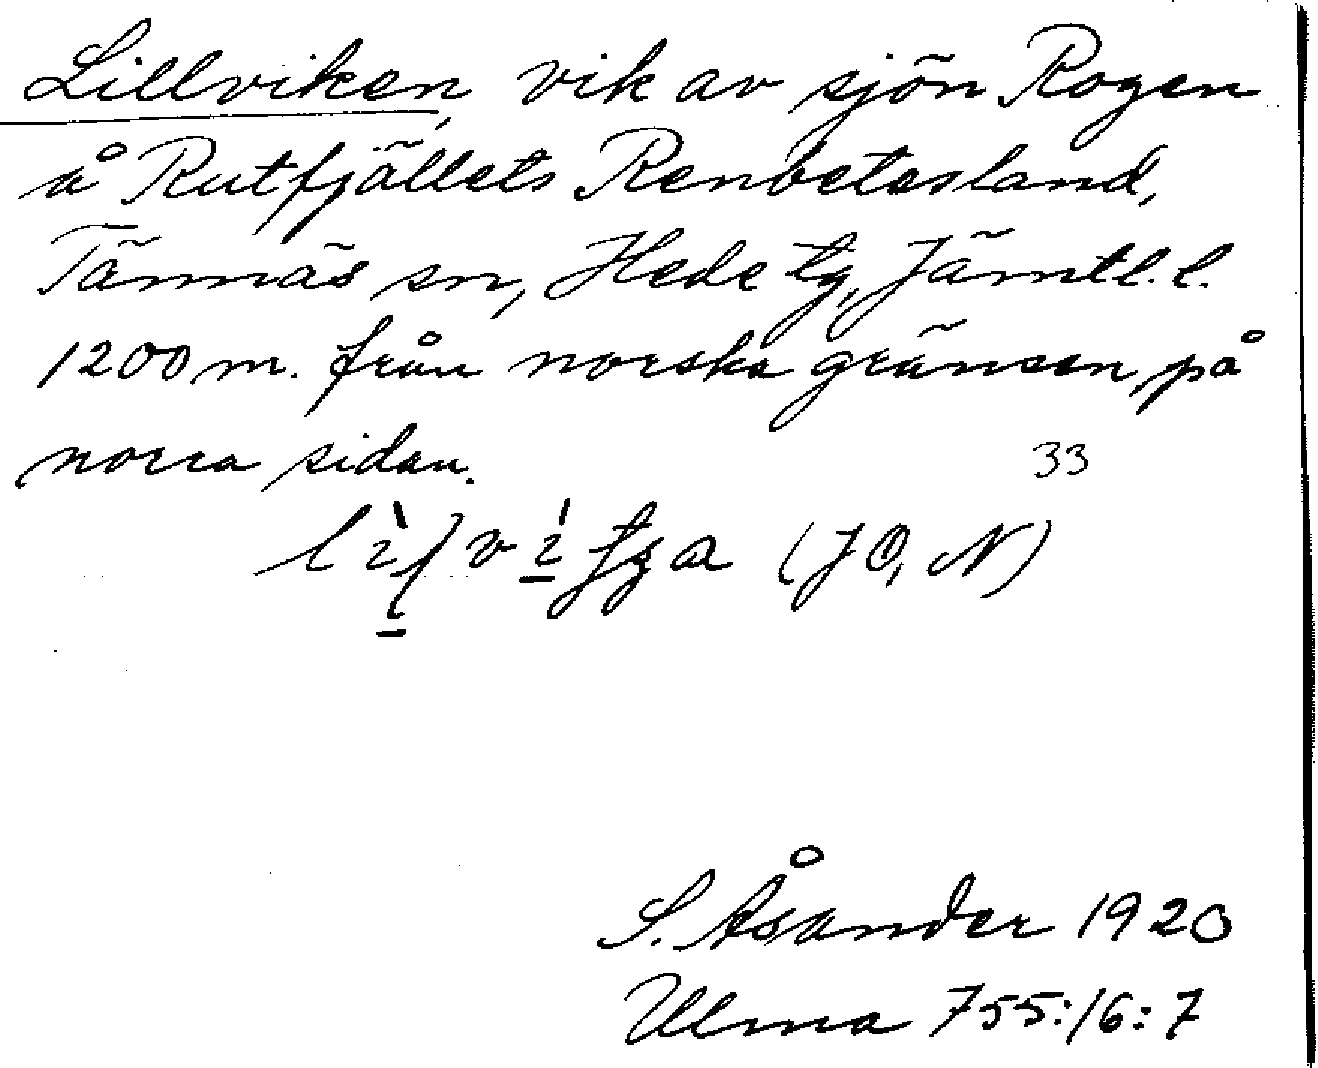 Lillviken, vik av sjön Rogen
å Rutfjällets Renbetesland,
Tännäs sn, Hede tg, Jämtl. l.
1200 m. från norska gränsen, på
norra sidan.
33
(JO, N)
S. Åsander 1920
Ulma 755:16:7